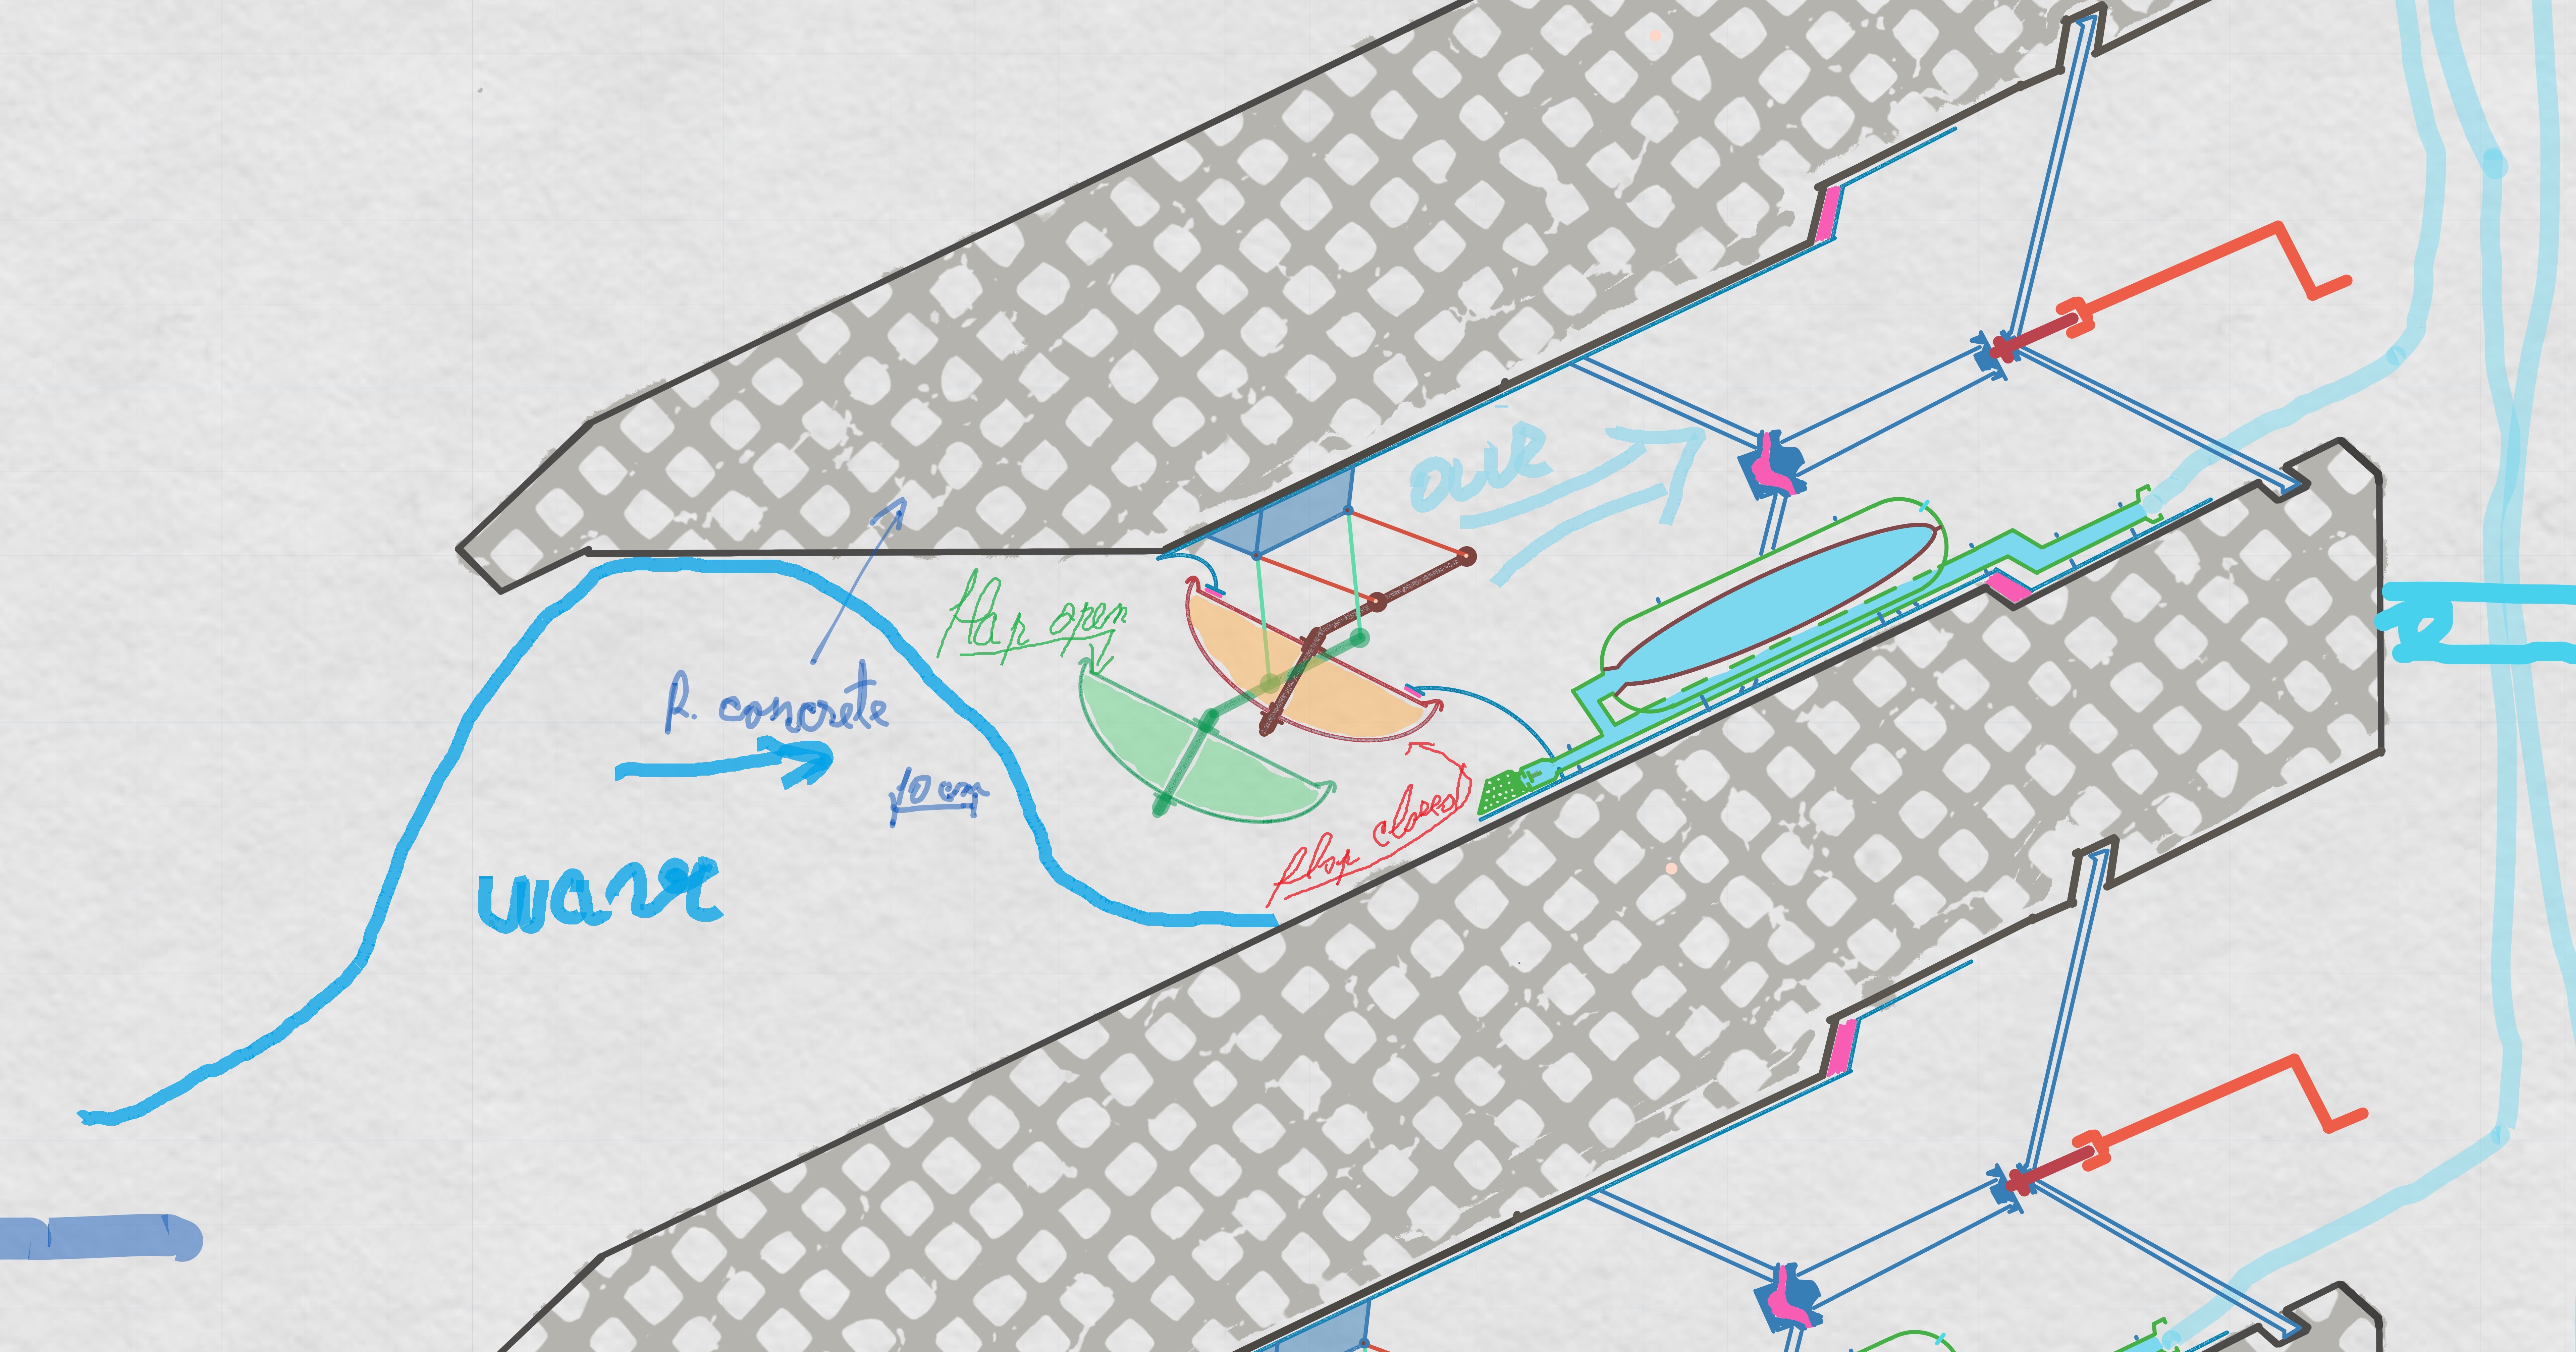 OUR
flap open
R. concrete
10 cm
flap closed
wave